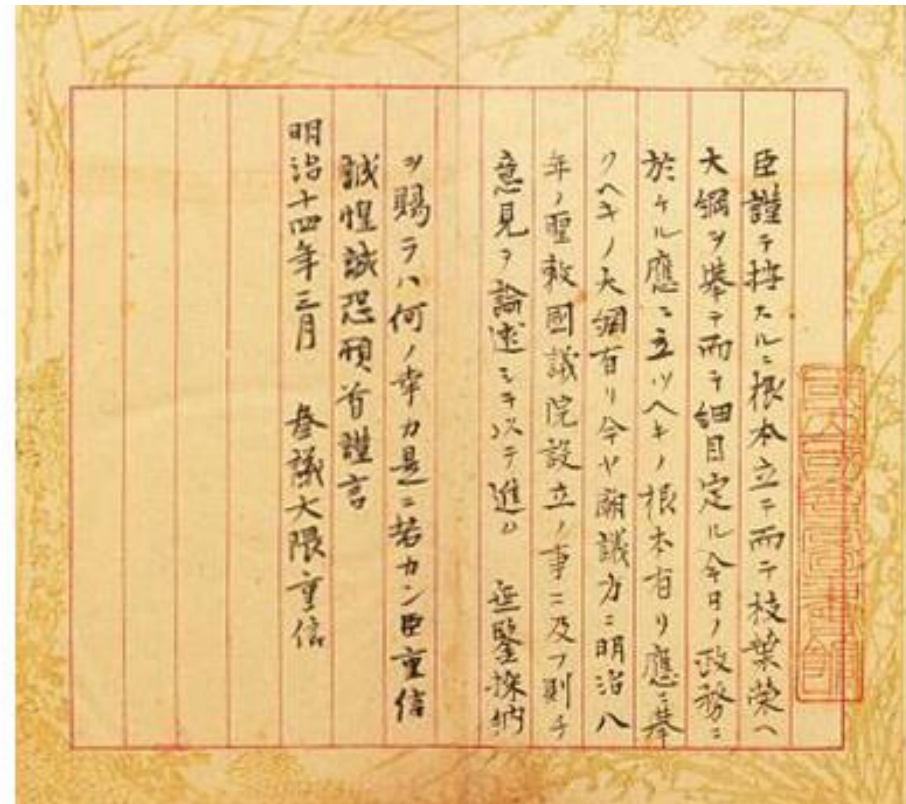 臣謹テ按スルニ根本立テ而テ枝葉栄ヘ
大綱ヲ挙テ而テ細目定ル今日ノ政務ニ
於ケル應ニ立ツヘキノ根本有リ應ニ挙
クヘキノ大綱有リ今ヤ廟議方ニ明治八
年ノ聖敕國議院設立ノ事ニ及フ則チ
意見ヲ論述シテ以テ進ム 垂鑒採納
ヲ賜ラハ何ノ幸カ是ニ若カン臣重信
誠惶誠恐頓首謹言
明治十四年三月 參議大隈重信